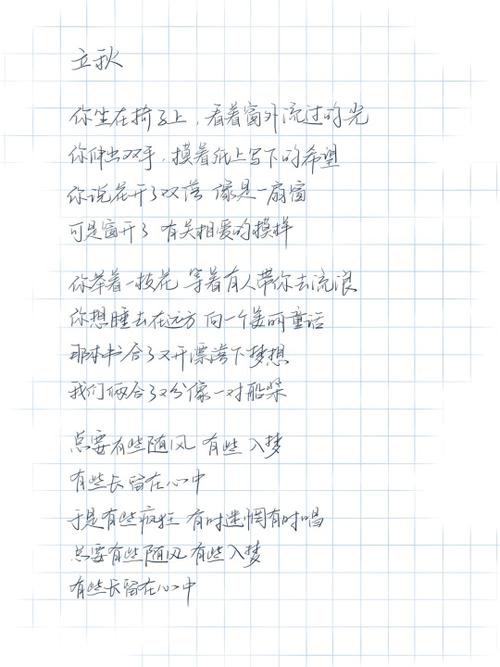 立秋
你坐在椅子上，看着窗外流过的光
你伸出双手，摸着纸上写下的希望
你说花开了又落 像是一扇窗
可是窗开了 有关相爱的模样
你举着一枝花 等着有人带你去流浪
你想睡去在远方 向一个美丽童话
那本书合了又开漂落下梦想
我们俩合了又分像一对船桨
总要有些随风 有些入梦
有些长留在心中
于是有些疯狂 有时迷惘有时唱
总要有些随风 有些入梦
有些长留在心中